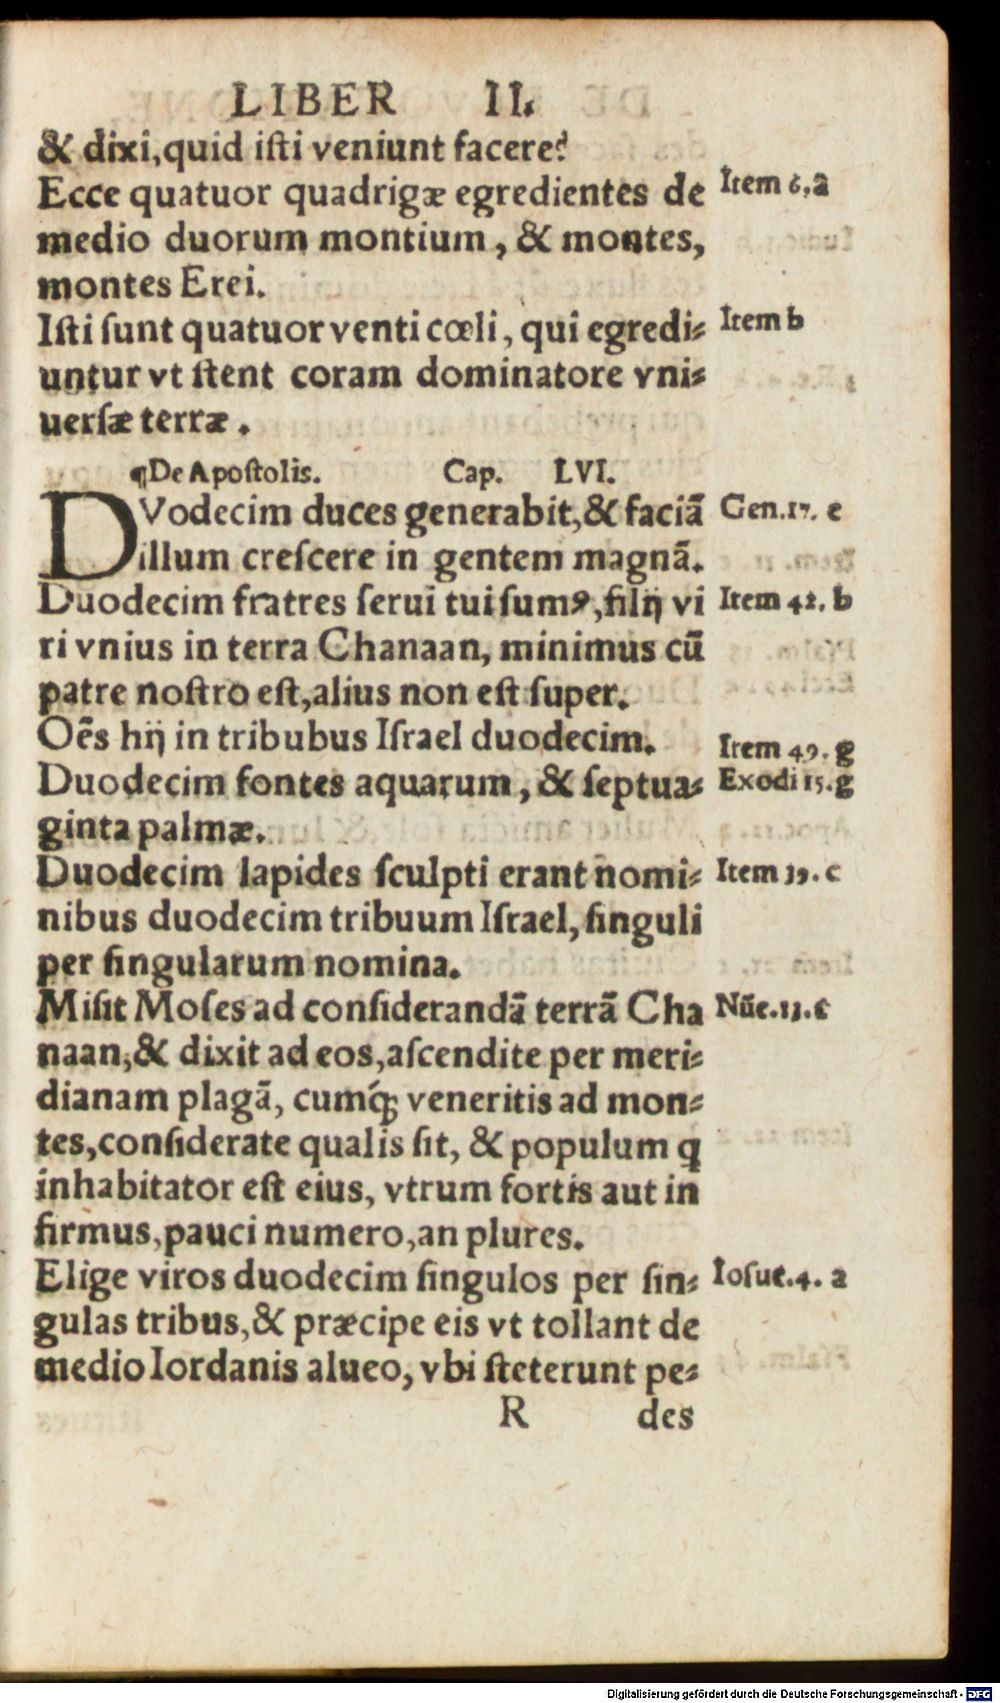 LIBER II.
& dixi, quid iſti veniunt facere?
Ecce quatuor quadrigæ egredientes de
Item 6, a
medio duorum montium, & montes,
montes Erei.
Iſti ſunt quatuor venti cœli, qui egredi⸗
Item b
untur vt ſtent coram dominatore vni⸗
uerſæ terræ.
¶De Apoſtolis. Cap. LVI.
DVodecim duces generabit, & faciã
Gen.17. e
illum creſcere in gentem magnã.
Duodecim fratres ſerui tui ſumꝰ, filij vi
Item 42. b
ri vnius in terra Chanaan, minimus cũ
patre noſtro eſt, alius non eſt ſuper.
Oẽs hij in tribubus Iſrael duodecim.
Item 49. g
Duodecim fontes aquarum, & ſeptua⸗
Exodi 15. g
ginta palmæ.
Duodecim lapides ſculpti erant nomi⸗
Item 39. c
nibus duodecim tribuum Iſrael, ſinguli
per ſingularum nomina.
Miſit Moſes ad conſiderandã terrã Cha
Nũe.13. c
naan, & dixit ad eos, aſcendite per meri⸗
dianam plagã, cumq́; veneritis ad mon⸗
tes, conſiderate qualis ſit, & populum q
inhabitator eſt eius, vtrum fortis aut in
firmus, pauci numero, an plures.
Elige viros duodecim ſingulos per ſin⸗
Ioſue.4. a
gulas tribus, & præcipe eis vt tollant de
medio Iordanis alueo, vbi ſteterunt pe⸗
R des
Digitalisierung gefördert durch die Deutsche Forschungsgemeinschaft - DFG